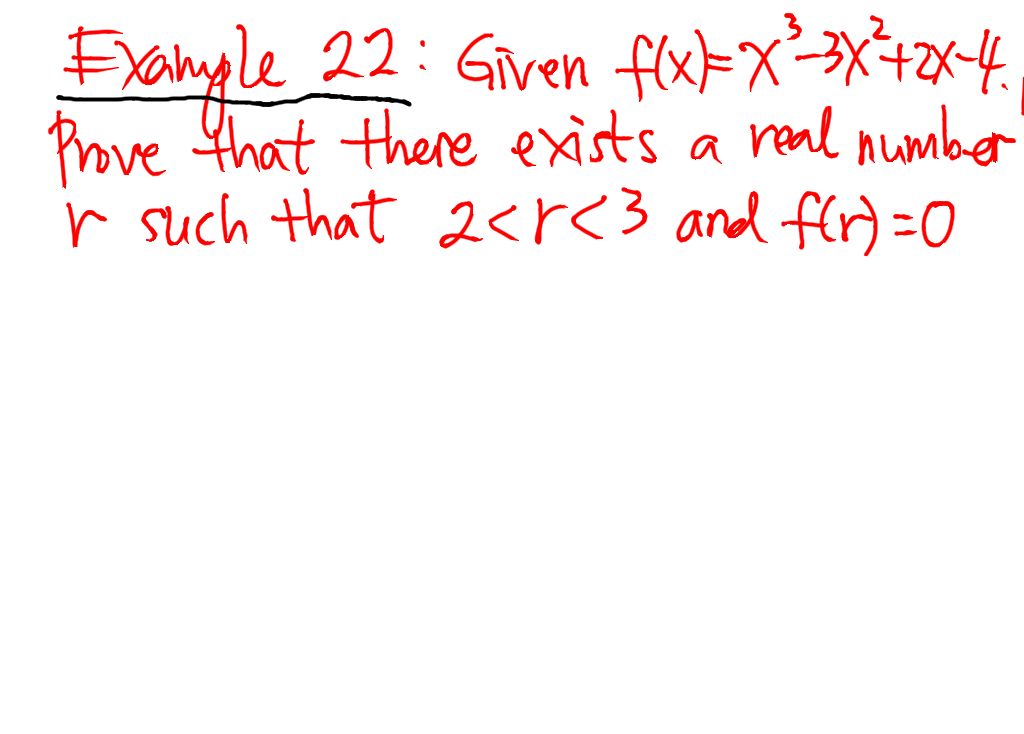 Example 22: Given f(x)=x³-3x²+2x-4.
Prove that there exists a real number
r such that 2<r<3 and f(r)=0